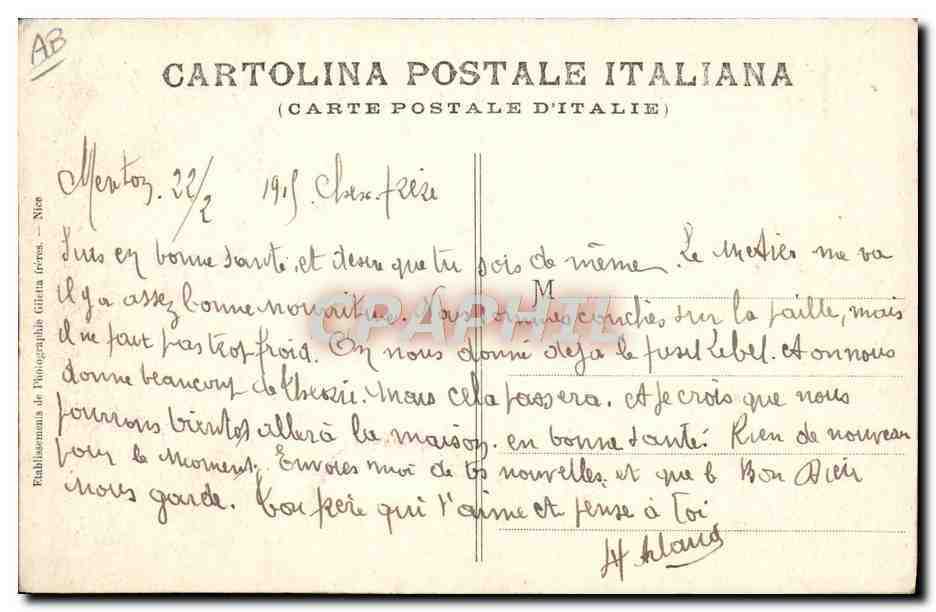 AB
CARTOLINA POSTALE ITALIANA
(CARTE POSTALE D'ITALIE)
Menton. 22/2 1915. Cher frère
Suis en bonne santé, et desire que tu sois de même. Le metier me va
M
il y a assez bonne nourriture. Nous sommes couchés sur la paille, mais
il ne fait pas trop froid. On nous donne deja le fusil Lebel. Et on nous
donne beaucoup de theorie. Mais cela passera. Et je crois que nous
pourrons bientot aller à la maison, en bonne santé. Rien de nouveau
pour le moment. Envoies moi de tes nouvelles, et que le Bon Dieu
nous garde. Ton frère qui t'aime et pense à toi
Etablissements de Photographie Giletta frères. — Nice
CPAPHIL